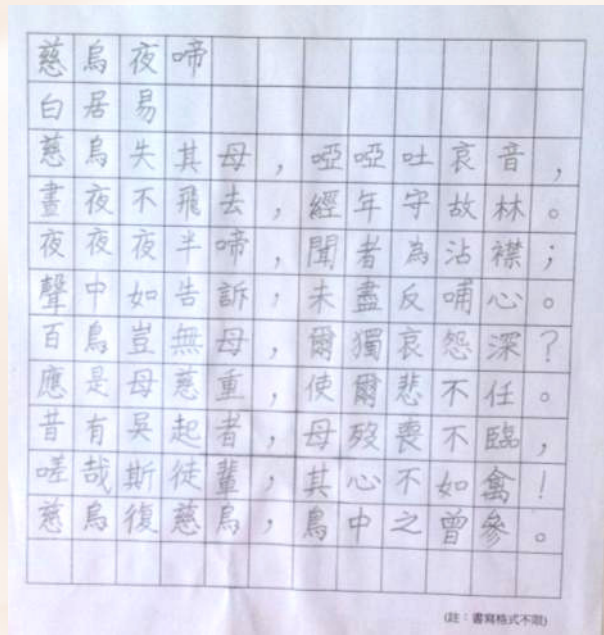 慈烏夜啼
白居易
慈烏失其母,啞啞吐哀音,
晝夜不飛去,經年守故林。
夜夜夜半啼,聞者為沾襟;
聲中如告訴,未盡反哺心。
百鳥豈無母,爾獨哀怨深?
應是母慈重,使爾悲不任。
昔有吳起者,母歿喪不臨,
嗟哉斯徒輩,其心不如禽!
慈烏復慈烏,鳥中之曾參。
(註:書寫格式不限)